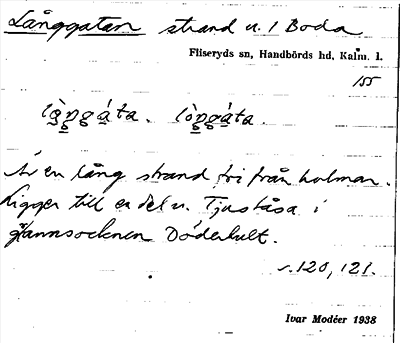 Långgatan strand u. 1 Boda
Fliseryds sn, Handbörds hd, Kalm. l.
155
lòŋgáta. lòŋgáta.
Är en lång strand fri från holmar.
Ligger till en del u. Tjuståsa i
grannsocknen Döderhult.
s. 120, 121.
Ivar Modéer 1938